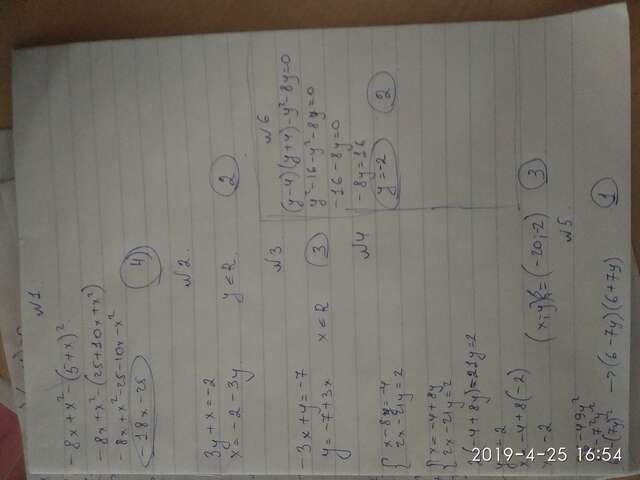 №1.
-8x+x²-(5+x)²
-8x+x²-(25+10x+x²)
-8x+x²-25-10x-x²
-18x-25
4)
№2.
3y+x=-2
x=-2-3y
y∈R
2
№3
-3x+y=-7
y=-7+3x
x∈R
3
№4
{x-8y=-4
2x-21y=2
{x=-4+8y
2x-21y=2
y=2
x=-4+8(-2)
(x;y)=(-20;-2)
3
№5
-49y²
-(7y)² → (6-7y)(6+7y)
1
№6
(y-4)(y+4)-y²-8y=0
y²-16-y²-8y=0
-16-8y=0
-8y=16
y=-2
2
2019-4-25 16:54